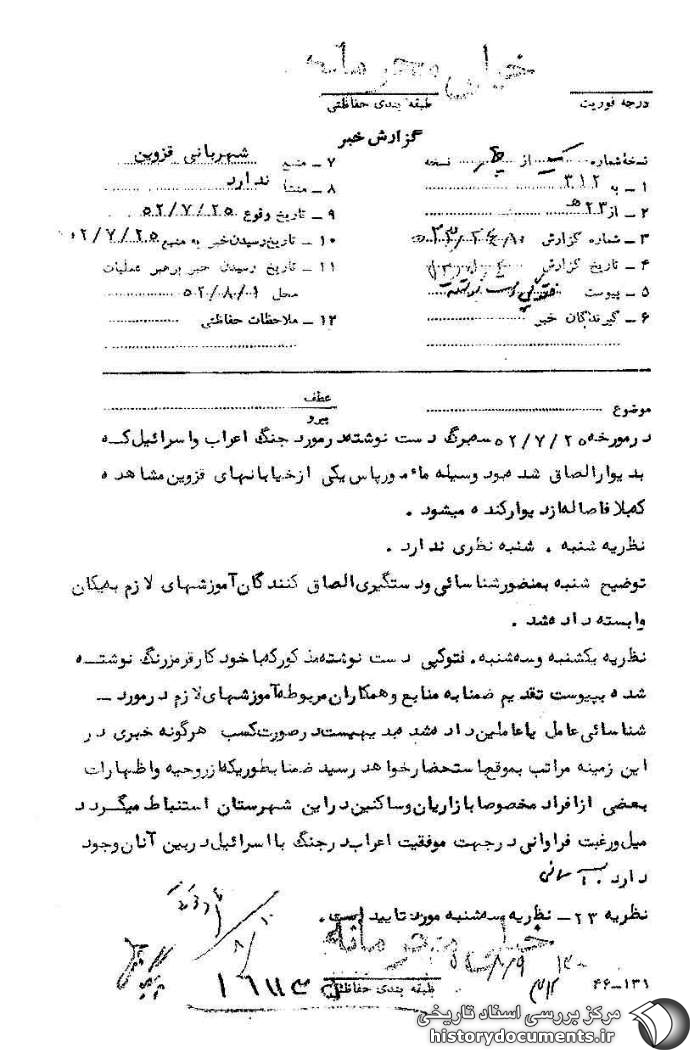 خیلی محرمانه
درجه فوریت
طبقه بندی حفاظتی
گزارش خبر
نسخهٔ شماره یک از چهار نسخه
۱ – به ۳۱۲
۲ – از ۲۳ ه
۳ – شماره گزارش
۴ – تاریخ گزارش
۵ – پیوست فتوکپی دست نوشته
۶ – گیرندگان خبر
۷ – منبع شهربانی قزوین
۸ – منشأ ندارد
۹ – تاریخ وقوع ۵۲/۷/۲۵
۱۰ – تاریخ رسیدن خبر به منبع ۵۲/۷/۲۵
۱۱ – تاریخ رسیدن خبر برهبر عملیات
محل ۵۲/۸/۱
۱۲ – ملاحظات حفاظتی
موضوع
عطف
پیرو
در مورخه ۵۲/۷/۲۵ سه برگ دست نوشته در مورد جنگ اعراب و اسرائیل که
بدیوار الصاق شده بود وسیله مأمور پاس یکی از خیابانهای قزوین مشاهده
که بلافاصله از دیوار کنده میشود .
نظریه شنبه . شنبه نظری ندارد .
توضیح شنبه بمنظور شناسائی و دستگیری الصاق کنندگان آموزشهای لازم به یکان
وابسته داده شد .
نظریه یکشنبه و سه شنبه . فتوکپی دست نوشته مذکور که با خودکار قرمز رنگ نوشته
شده بپیوست تقدیم ضمنا به منابع و همکاران مربوطه آموزشهای لازم در مورد –
شناسائی عامل یا عاملین داده شد بدیهیست در صورت کسب هرگونه خبری در
این زمینه مراتب بموقع باستحضار خواهد رسید ضمنا بطوریکه از روحیه و اظهارات
بعضی از افراد مخصوصا بازاریان و ساکنین در این شهرستان استنباط میگردد
میل و رغبت فراوانی در جهت موفقیت اعراب در جنگ با اسرائیل در بین آنان وجود
دارد .
نظریه ۲۳ – نظریه سه شنبه مورد تایید است .
خیلی محرمانه
طبقه بندی حفاظتی
۴۶–۱۳۱
مرکز بررسی اسناد تاریخی
historydocuments.ir